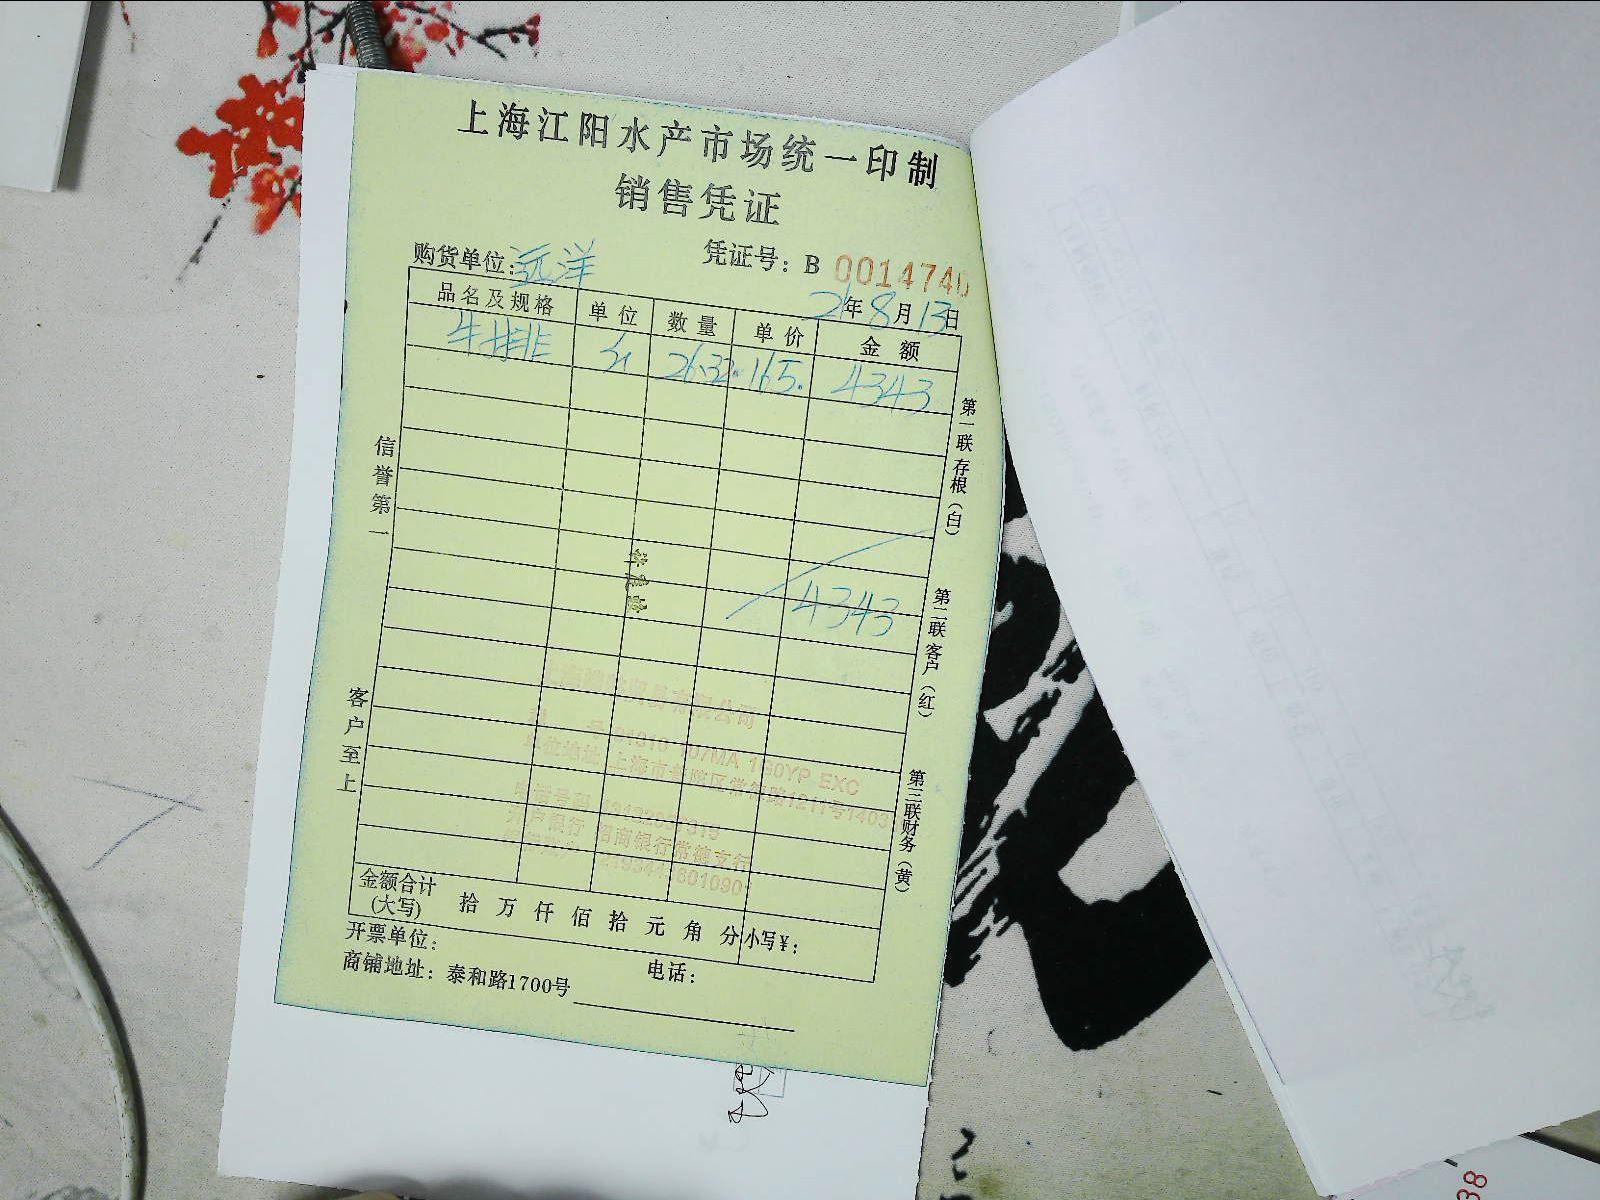 上海江阳水产市场统一印制
销售凭证
购货单位：远洋 凭证号：B 0014740
21年8月13日
品名及规格 单位 数量 单价 金额
牛排 26.32 165. 4343
4343
信誉第一
客户至上
第一联存根（白）
第二联客户（红）
第三联财务（黄）
贸易有限公司
1G0YP EXC
单位地址 上海市普陀区常德路1211号1403
电话号码
开户银行 招商银行常德支行
金额合计(大写) 拾 万 仟 佰 拾 元 角 分 小写¥：
开票单位： 电话：
商铺地址：泰和路1700号
38